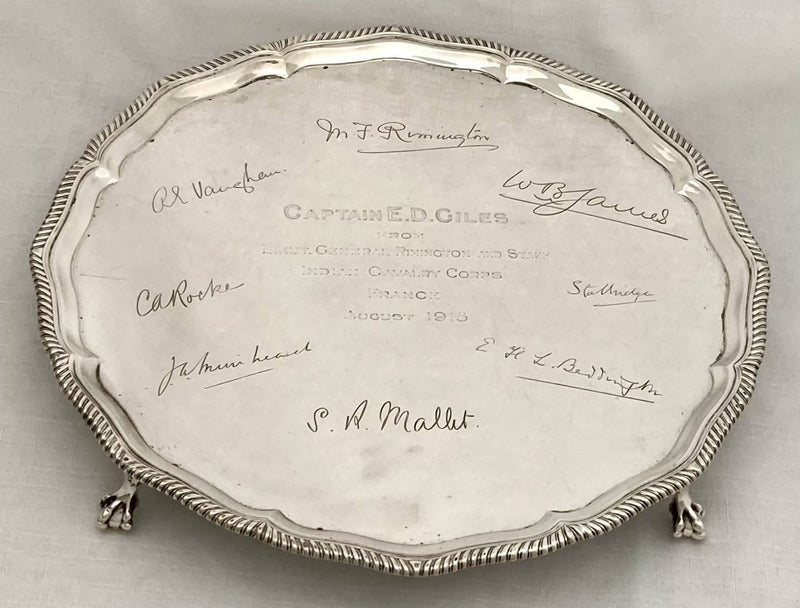 M. F. Rimington
R E Vaughan.
W B James
CAPTAIN E.D. GILES
FROM
LIEUT. GENERAL RIMINGTON AND STAFF
INDIAN CAVALRY CORPS
FRANCE
AUGUST 1915
CARocke
Stalbridge
J A Muirhead
E H L Beddington
S. A. Mallet.